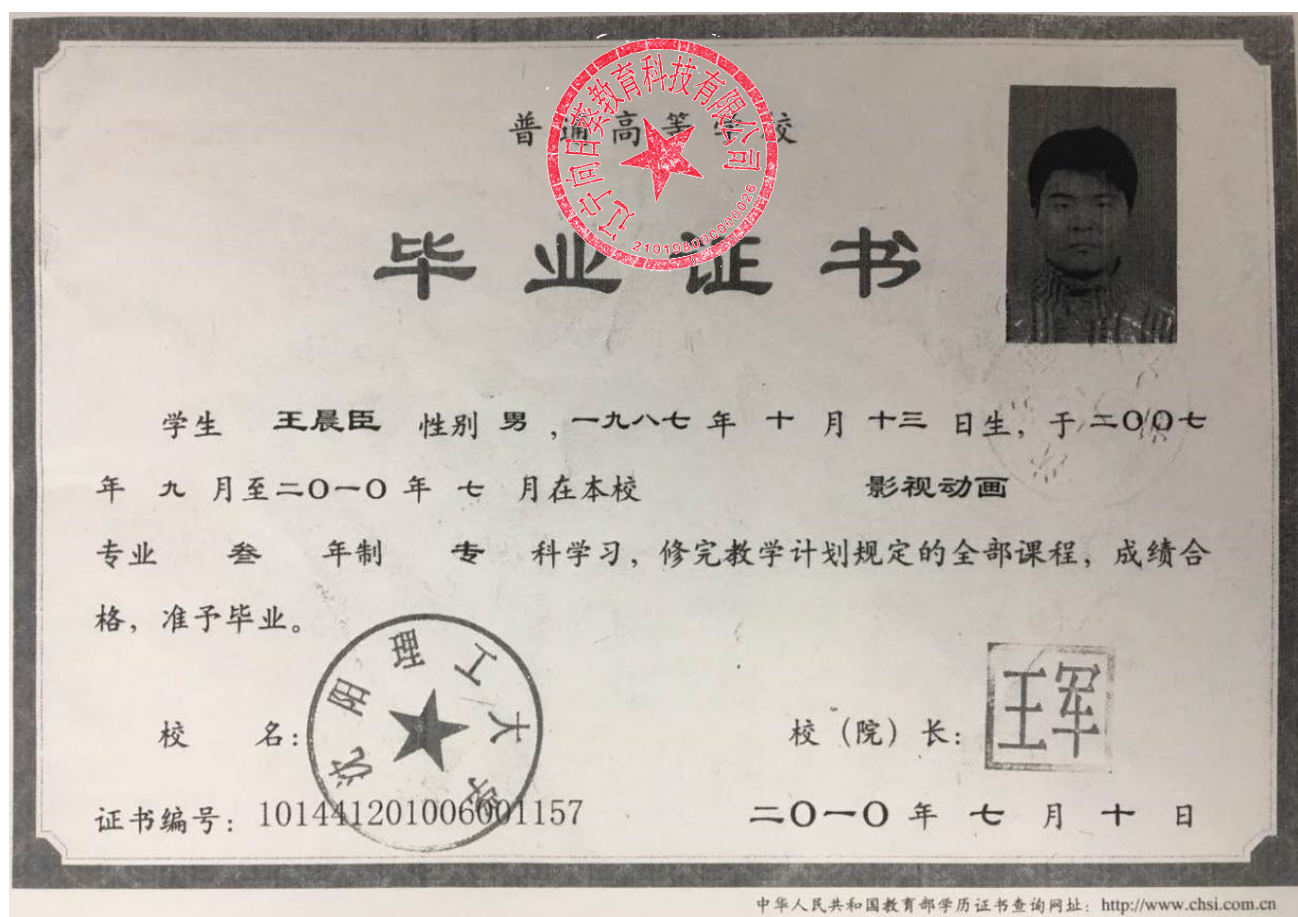 普通高等学校
辽宁向日葵教育科技有限公司
2101980000000026
毕业证书
学生 王晨臣 性别 男 ,一九八七 年 十 月 十三 日生, 于 二〇〇七
年 九 月至二〇一〇 年 七 月在本校 影视动画
专业 叁 年制 专 科学习, 修完教学计划规定的全部课程, 成绩合
格, 准予毕业。
校 名: 沈阳理工大学
校 (院) 长: 王军
证书编号: 101441201006001157
二〇一〇 年 七 月 十 日
中华人民共和国教育部学历证书查询网址: http://www.chsi.com.cn